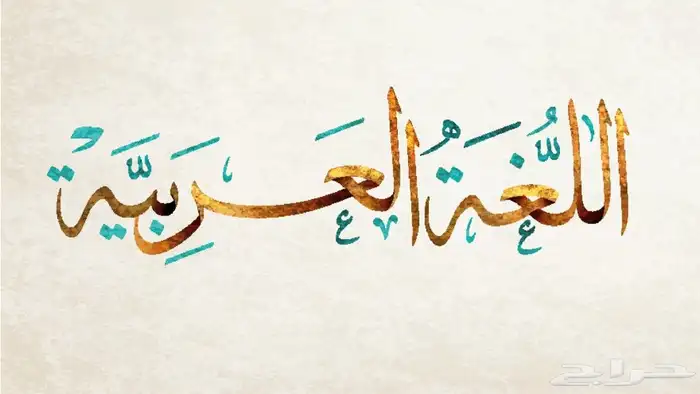 اللُّغَةُ العَرَبِيَّة
حراج